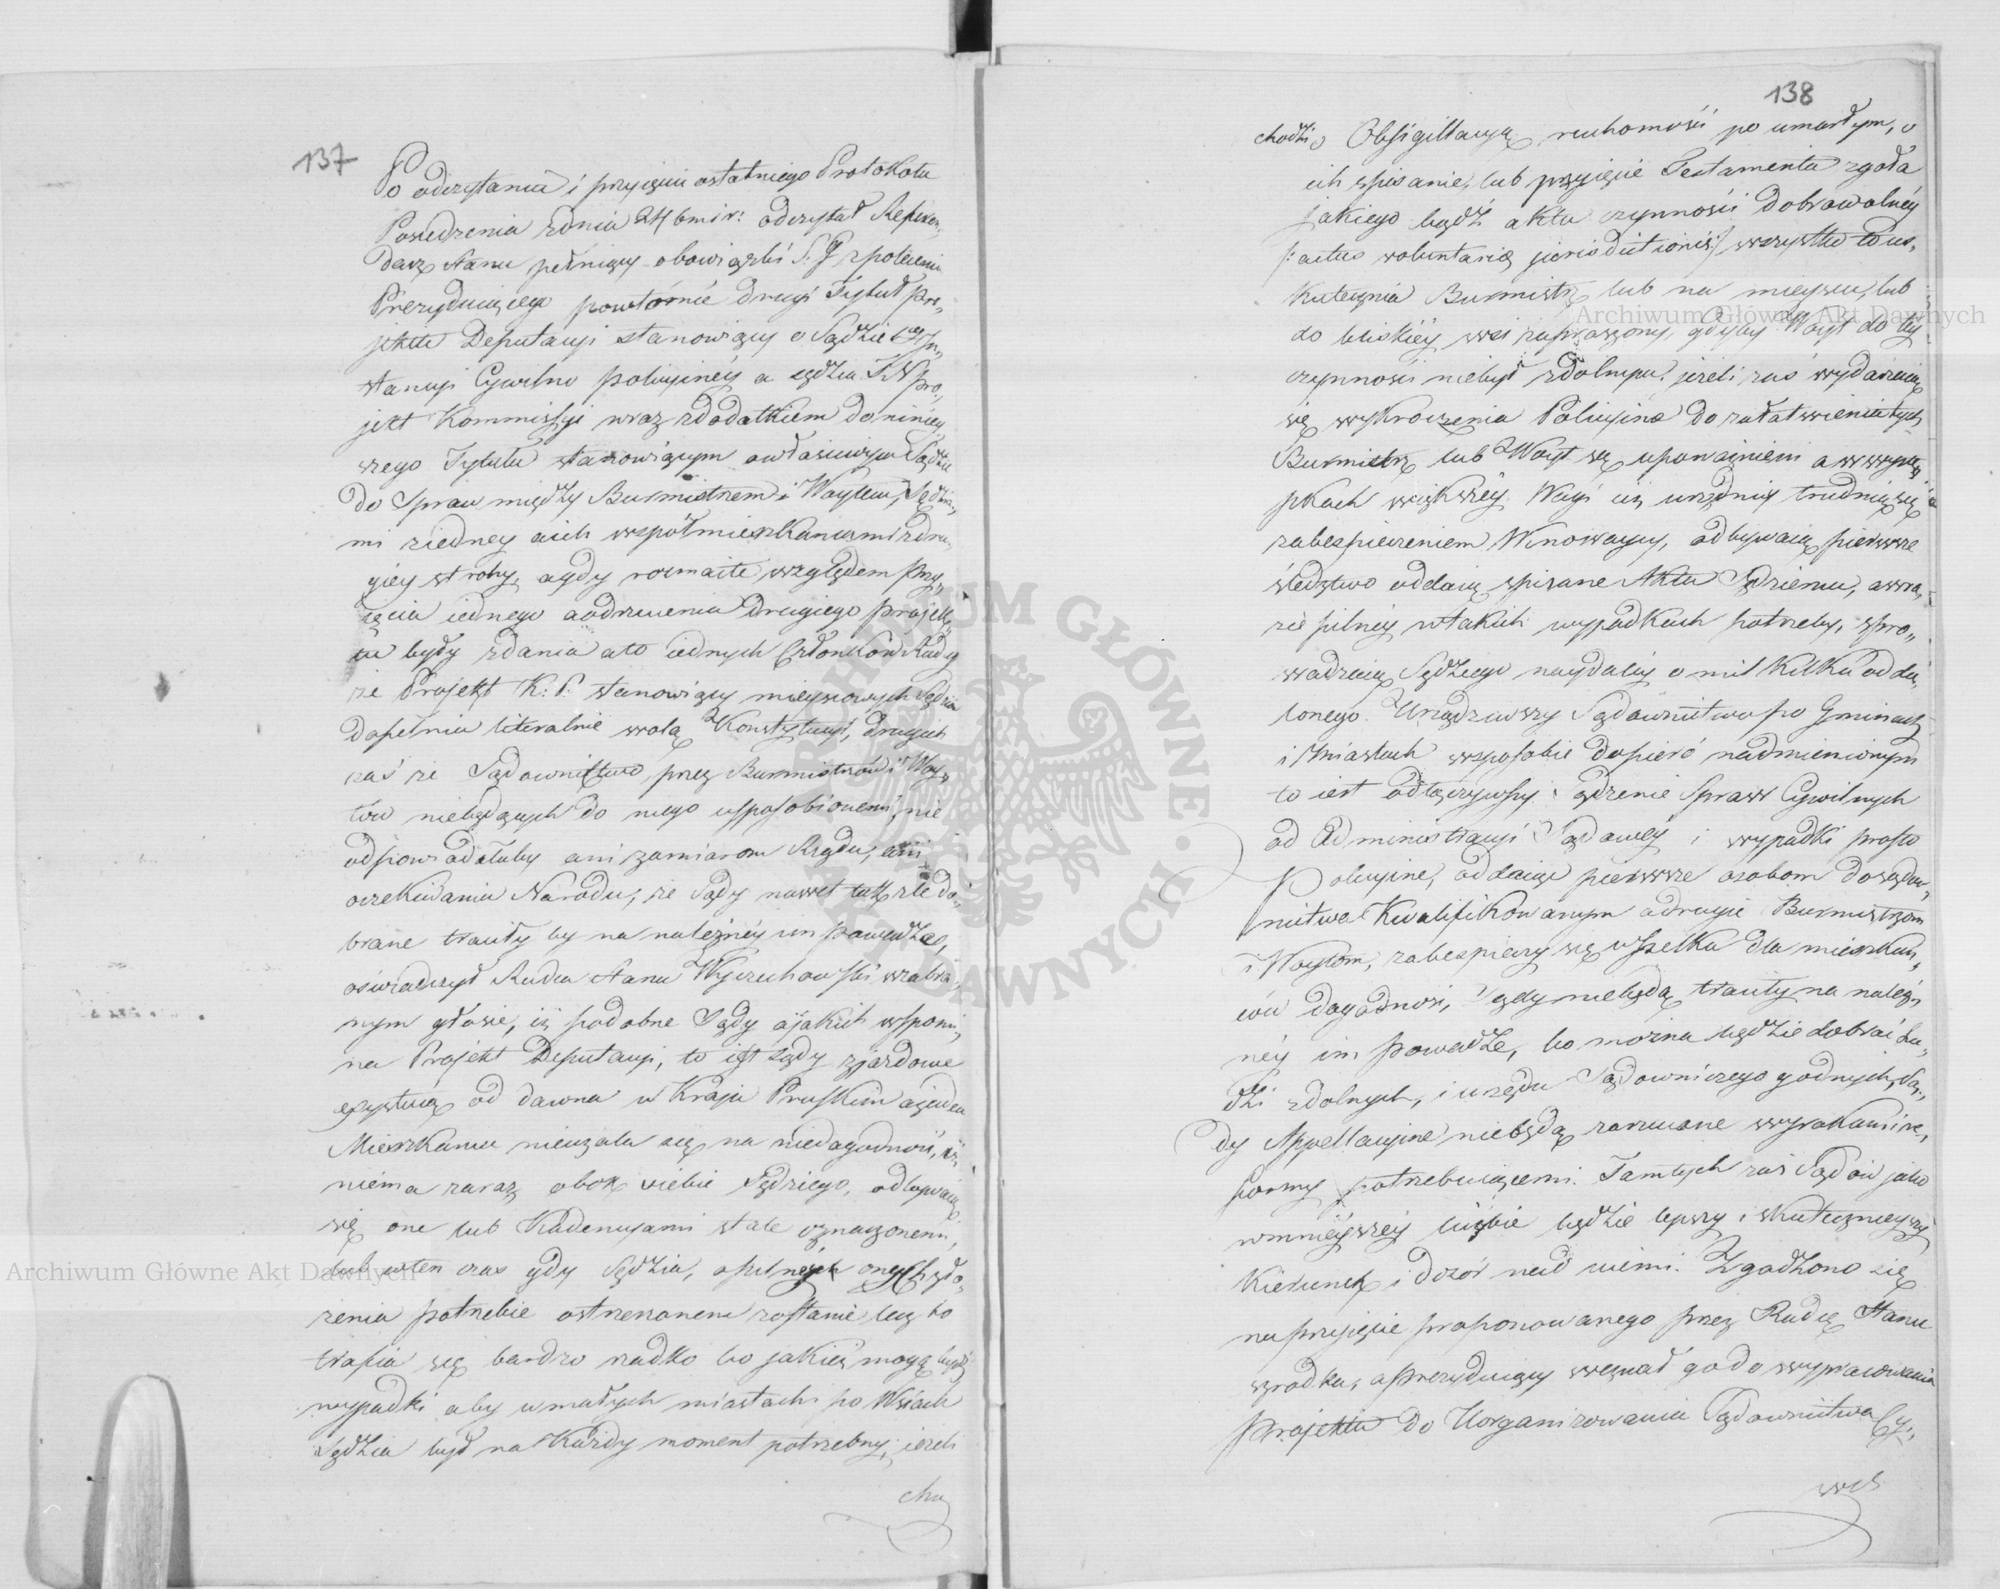 137
Po odczytaniu i przyięciu ostatniego Protokołu
Posiedzenia z dnia 24 bmir: odczytał Referen„
darz Stanu pełniący obowiązki S. J. z polecenia
Prezyduiącego powtórnie drugi Tytuł pro„
jektu Deputacyi stanowiący o Sądzie
stancyi Cywilno policyinéy a sędzia pro„
jekt Kommissyi wraz z dodatkiem do niniey„
szego Tytułu stanowiącym o właściwym Sądzie
do Spraw między Burmistrzem i Woytem, Sędzia„
mi z iedney a ich współmieszkancami z dru„
giéy strony, a gdy rozmaite względem przy„
ięcia iednego a odrzucenia drugiego projek„
tu były zdania a to iednych Członków Rady
że Projekt K: P: stanowiący mieyscowych Sędziów
dopełnia literalnie wolą Konstytucyi, drugich
zaś że Sądownictwo przez Burmistrzów i Woy„
tów niebędących do niego usposobionemi, nie
odpowiadałuby ani zamiarom Rządu, ani
oczekiwaniu Narodu, że Sądy nawet tak źle do„
brane traciły by na należnéy im powadze,
oświadczył Radca Stanu Wyczechowski w zabra„
nym głosie, iż podobne Sądy o jakich wspomi„
na Projekt Deputacyi, to iest Sądy zjazdowe
exystuią od dawna w Kraju Pruskim a żaden
Mieszkaniec nieużala się na niedogodność, iż
niema zaraz obok siebie Sędziego, odbywaią
się one lub Kadencyami stale oznaczonemi,
lub wten czas gdy Sędzia, o pilnéych onych zło„
żenia potrzebie ostrzeżonem zostanie lecz to
trafia się bardzo rzadko bo jakież mogą bydź
wypadki aby w małych miastach i po Wsiach
Sędzia był na każdy moment potrzebny, ieżeli
cho
138
chodzi o Obsigillacyą ruchomości po umarłym, o
ich spisanie, lub przyięcie Testamentu zgoła
jakiego bądź aktu czynności dobrowolnéy
/: actus voluntariae jurisdictionis :/ wszystko to us„
kutecznia Burmistrz lub na mieyscu, lub
do bliskiéy wsi zaproszony, gdyby Woyt do téy
czynności niebył zdolnym. jeżeli zaś wydarzaią
się wykroczenia Policyine do załatwienia tych
Burmistrz lub Woyt są upoważnieni a w wypad„
pkach większéy Wagi ciż urzędnicy trudnią się
zabespieczeniem Winowaycy, odbywaią pierwsze
śledztwo oddaią spisane Akta Sędziemu, a w ra„
zie pilnéy w takich wypadkach potrzeby, spro„
wadzaią Sędziego naydaléy o mil kilka odda„
lonego. Urządzawszy Sądownictwo po Gminach
i Miastach w sposobie dopiero nadmienionym
to iest odłączywszy sądzenie Spraw Cywilnych
od Administracyi Sądowéy i wypadki prosto
Policyine, oddaiąc pierwsze osobom do sądow„
nictwa Kwalifikowanym a drugie Burmistrzom
i Woytom, zabespieczy się wszelka dla mieszkań„
ców dogodność, Sądy niebędą traciły na należ„
néy im powadze, bo można będzie dobrać lu„
dzi zdolnych, i urzędu Sądowniczego godnych, Są„
dy Appellacyine niebędą zarzucane wyrokami re„
formy potrzebuiącemi. Tamtych zaś Sądów jako
w mnieyszéy liczbie będzie lepszy i skutecznieyszy
Kierunek i dozór nad niemi. Zgodzono się
na przyięcie proponowanego przez Radcę Stanu
środka, a Prezyduiący wezwał go do wypracowania
projektu do Uorganizowania Sądownictwa Cy„
wil
Archiwum Główne Akt Dawnych
Archiwum Główne Akt Dawnych
ARCHIWUM GŁÓWNE AKT DAWNYCH